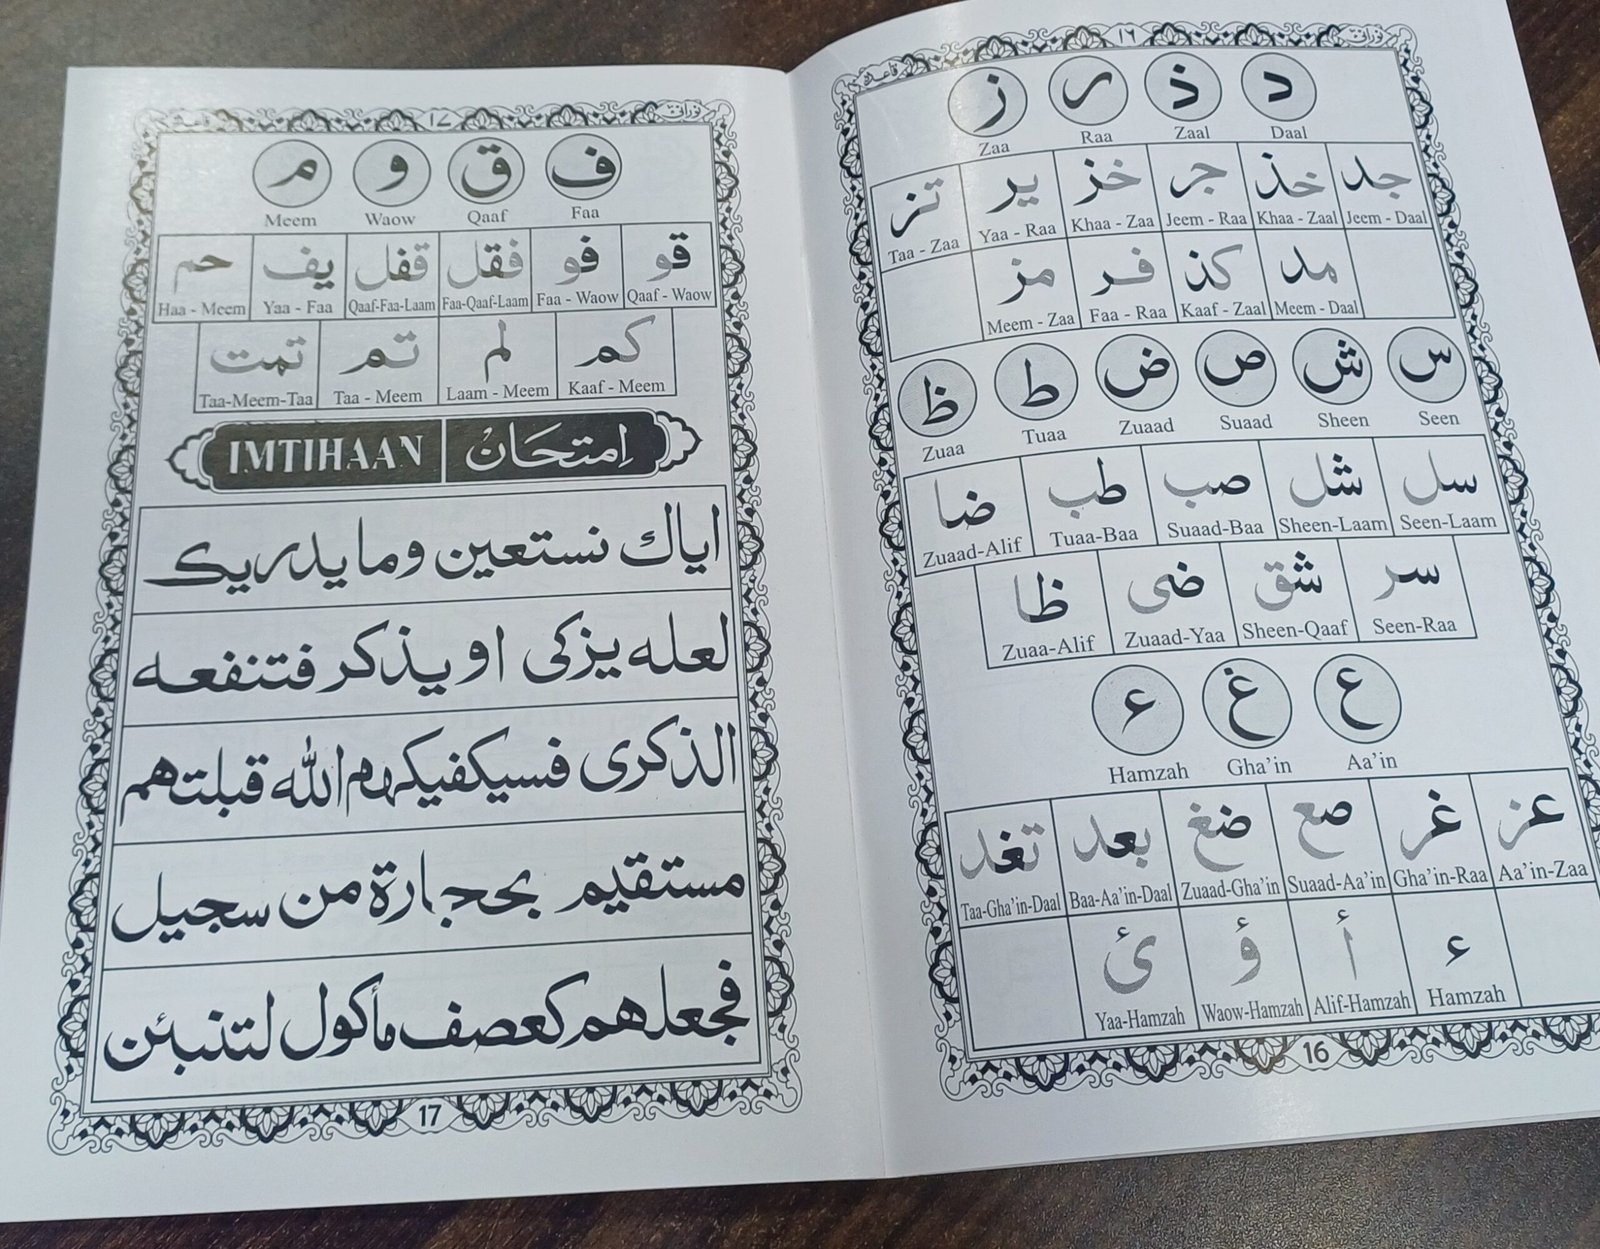 قاعدہ ١٦ نورانی
د ذ ر ز
Daal Zaal Raa Zaa
جد خذ جر خز یر تز
Jeem - Daal Khaa - Zaal Jeem - Raa Khaa - Zaa Yaa - Raa Taa - Zaa
مد کذ فر مز
Meem - Daal Kaaf - Zaal Faa - Raa Meem - Zaa
س ش ص ض ط ظ
Seen Sheen Suaad Zuaad Tuaa Zuaa
سل شل صب طب ضا
Seen-Laam Sheen-Laam Suaad-Baa Tuaa-Baa Zuaad-Alif
سر شق ضی ظا
Seen-Raa Sheen-Qaaf Zuaad-Yaa Zuaa-Alif
ع غ ء
Aa'in Gha'in Hamzah
عز غر صع ضغ بعد تغد
Aa'in-Zaa Gha'in-Raa Suaad-Aa'in Zuaad-Gha'in Baa-Aa'in-Daal Taa-Gha'in-Daal
ء أ ؤ ئ
Hamzah Alif-Hamzah Waow-Hamzah Yaa-Hamzah
16
١٧ نورانی
ف ق و م
Faa Qaaf Waow Meem
قو فو فقل قفل یف حم
Qaaf - Waow Faa - Waow Faa-Qaaf-Laam Qaaf-Faa-Laam Yaa - Faa Haa - Meem
کم لم تم تمت
Kaaf - Meem Laam - Meem Taa - Meem Taa-Meem-Taa
اِمْتِحَانْ IMTIHAAN
ایاك نستعین وما یدریك
لعله یزکی او یذکر فتنفعه
الذکری فسیکفیکهم الله قبلتهم
مستقیم بحجارة من سجیل
فجعلهم کعصف مأکول لتنبئن
17